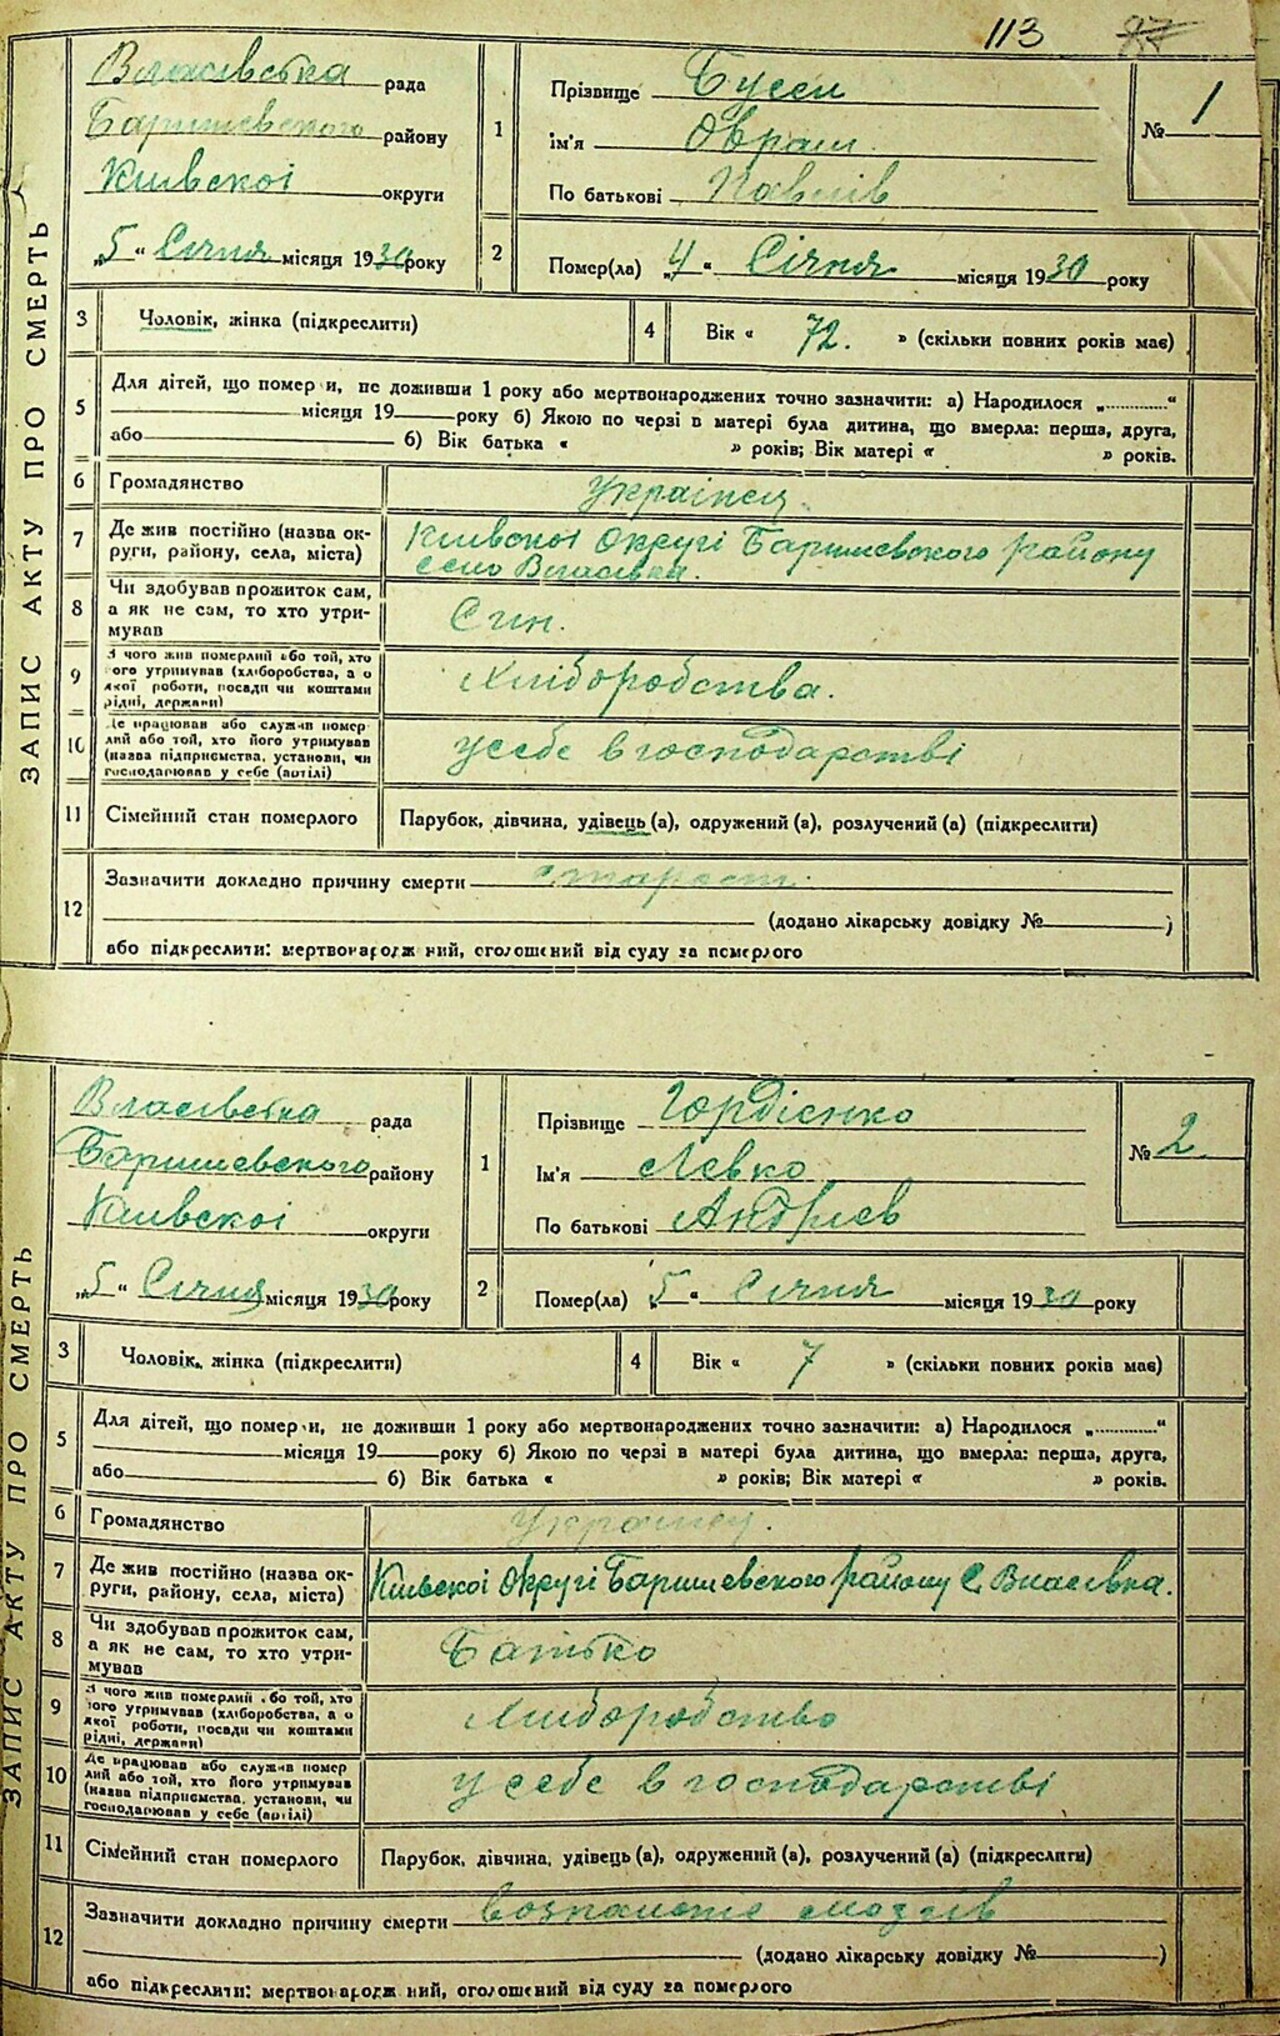 113
ЗАПИС АКТУ ПРО СМЕРТЬ
Власівська рада
Баришевского району
Київскоі округи
„5“ Січня місяця 1930 року
1
Прізвище
Ім'я Овраам
По батькові Павлів
№ 1
2
Помер(ла) „4“ Січня місяця 1930 року
3 Чоловік, жінка (підкреслити)
4 Вік « 72. » (скільки повних років має)
5 Для дітей, що померли, не доживши 1 року або мертвонароджених точно зазначити: а) Народилося „............“
місяця 19 року б) Якою по черзі в матері була дитина, що вмерла: перша, друга,
або б) Вік батька « » років; Вік матері « » років.
6 Громадянство Украінец.
7 Де жив постійно (назва ок-
руги, району, села, міста)
Київскоі Округі Баришевского району
село Власівка.
8 Чи здобував прожиток сам,
а як не сам, то хто утри-
мував
Син.
9 З чого жив померлий або той, хто
його утримував (хліборобства, а о
якої роботи, посади чи коштами
рідні, держави)
Хліборобства.
10 Де працював або служив помер-
лий або той, хто його утримував
(назва підприємства, установи, чи
господарював у себе (артілі)
у себе в господарстві
11 Сімейний стан померлого Парубок, дівчина, удівець (а), одружений (а), розлучений (а) (підкреслити)
12 Зазначити докладно причину смерти старост.
(додано лікарську довідку № )
або підкреслити: мертвонароджений, оголошений від суду за померлого
ЗАПИС АКТУ ПРО СМЕРТЬ
Власівська рада
Баришевского району
Київскоі округи
„5“ Січня місяця 1930 року
1
Прізвище Гордієнко
Ім'я Левко
По батькові Андрієв
№ 2
2
Помер(ла) „5“ Січня місяця 1930 року
3 Чоловік, жінка (підкреслити)
4 Вік « 7 » (скільки повних років має)
5 Для дітей, що померли, не доживши 1 року або мертвонароджених точно зазначити: а) Народилося „............“
місяця 19 року б) Якою по черзі в матері була дитина, що вмерла: перша, друга,
або б) Вік батька « » років; Вік матері « » років.
6 Громадянство Украінец.
7 Де жив постійно (назва ок-
руги, району, села, міста)
Київскоі Округі Баришевского району С. Власівка.
8 Чи здобував прожиток сам,
а як не сам, то хто утри-
мував
Батько
9 З чого жив померлий або той, хто
його утримував (хліборобства, а о
якої роботи, посади чи коштами
рідні, держави)
Хліборобство
10 Де працював або служив помер
лий або той, хто його утримував
(назва підприємства, установи, чи
господарював у себе (артілі)
у себе в господарстві
11 Сімейний стан померлого Парубок, дівчина, удівець (а), одружений (а), розлучений (а) (підкреслити)
12 Зазначити докладно причину смерти мозгів
(додано лікарську довідку № )
або підкреслити: мертвонароджений, оголошений від суду за померлого